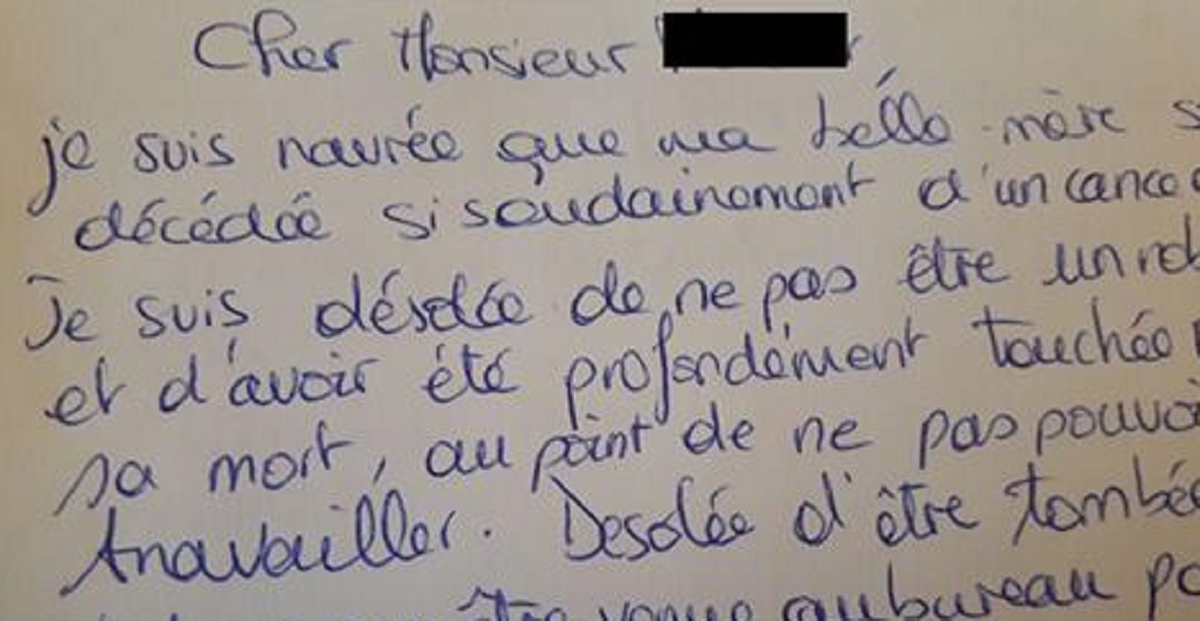 Cher Monsieur
je suis navrée que ma belle-mère s
décédée si soudainement d'un cance
Je suis désolée de ne pas être un rob
et d'avoir été profondément touchée
sa mort, au point de ne pas pouvoi
travailler. Desolée d'être tombée
être venue au bureau po